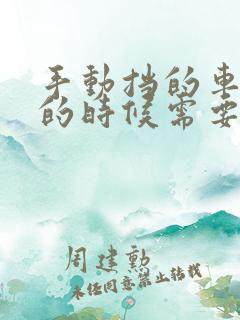 手動挡的車
的時候需要
周建勳
未经同意禁止转载